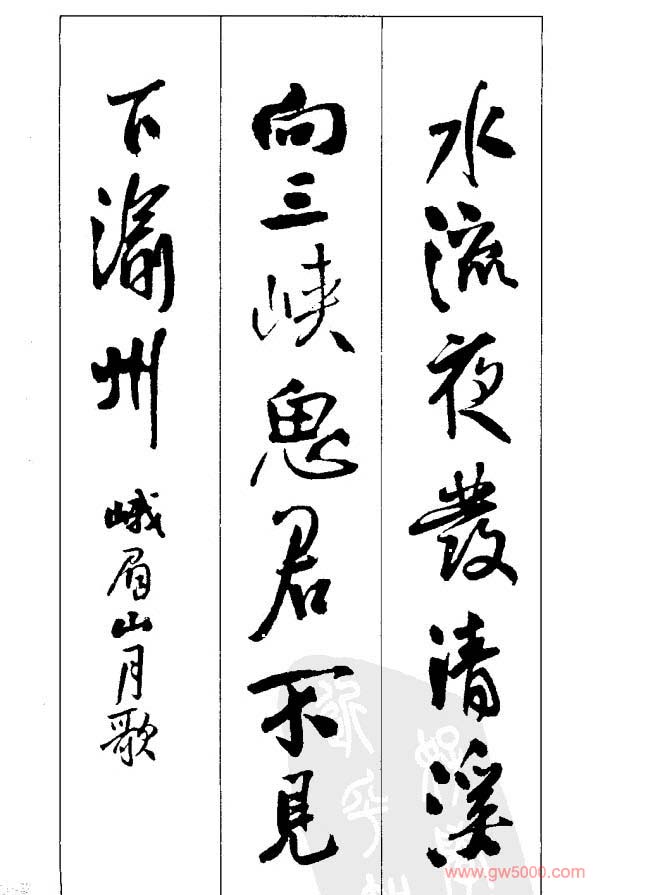 水流夜發清溪
向三峽思君不見
下渝州
峨眉山月歌
www.gw5000.com